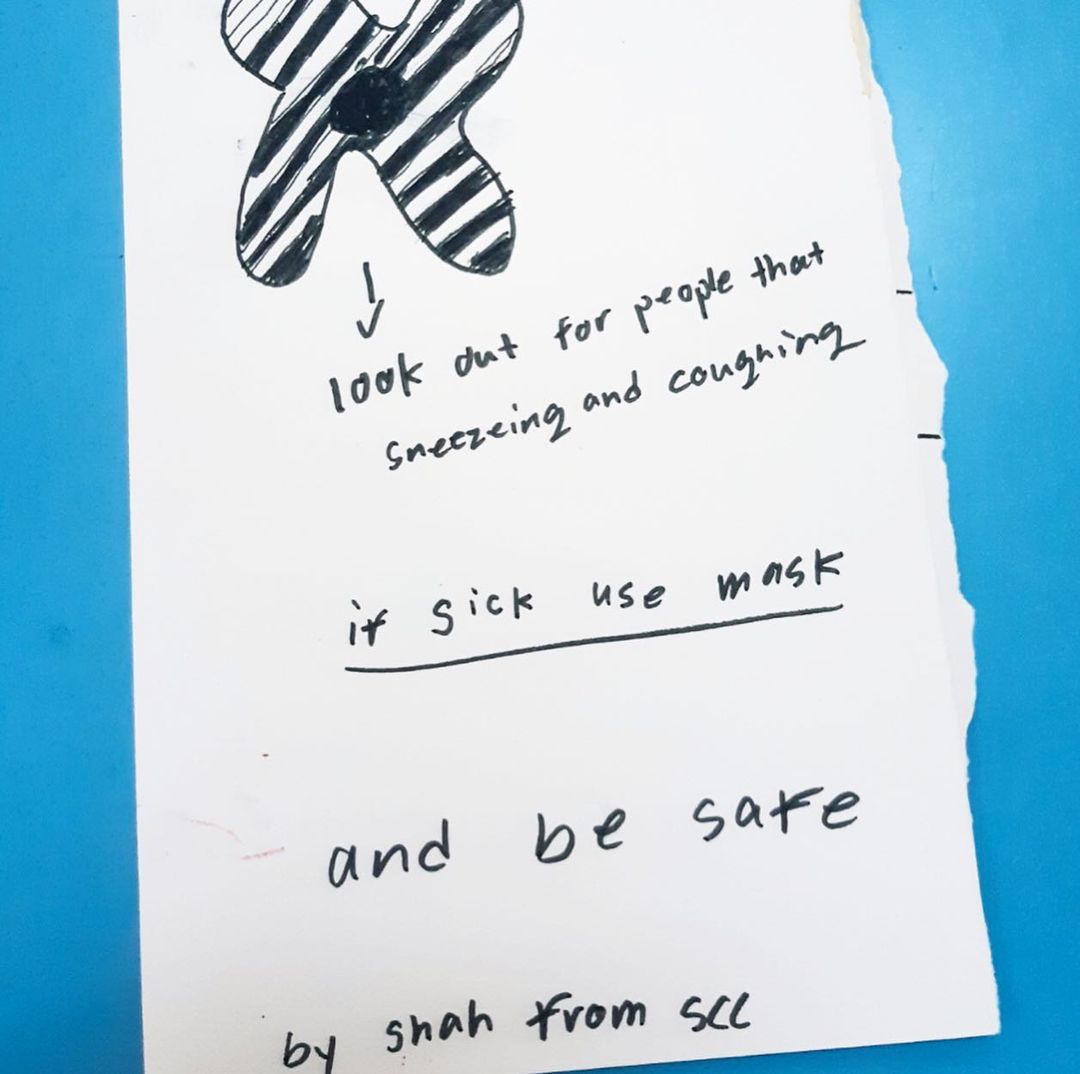 look out for people that
sneezeing and coughing
if sick use mask
and be safe
by shah from scc